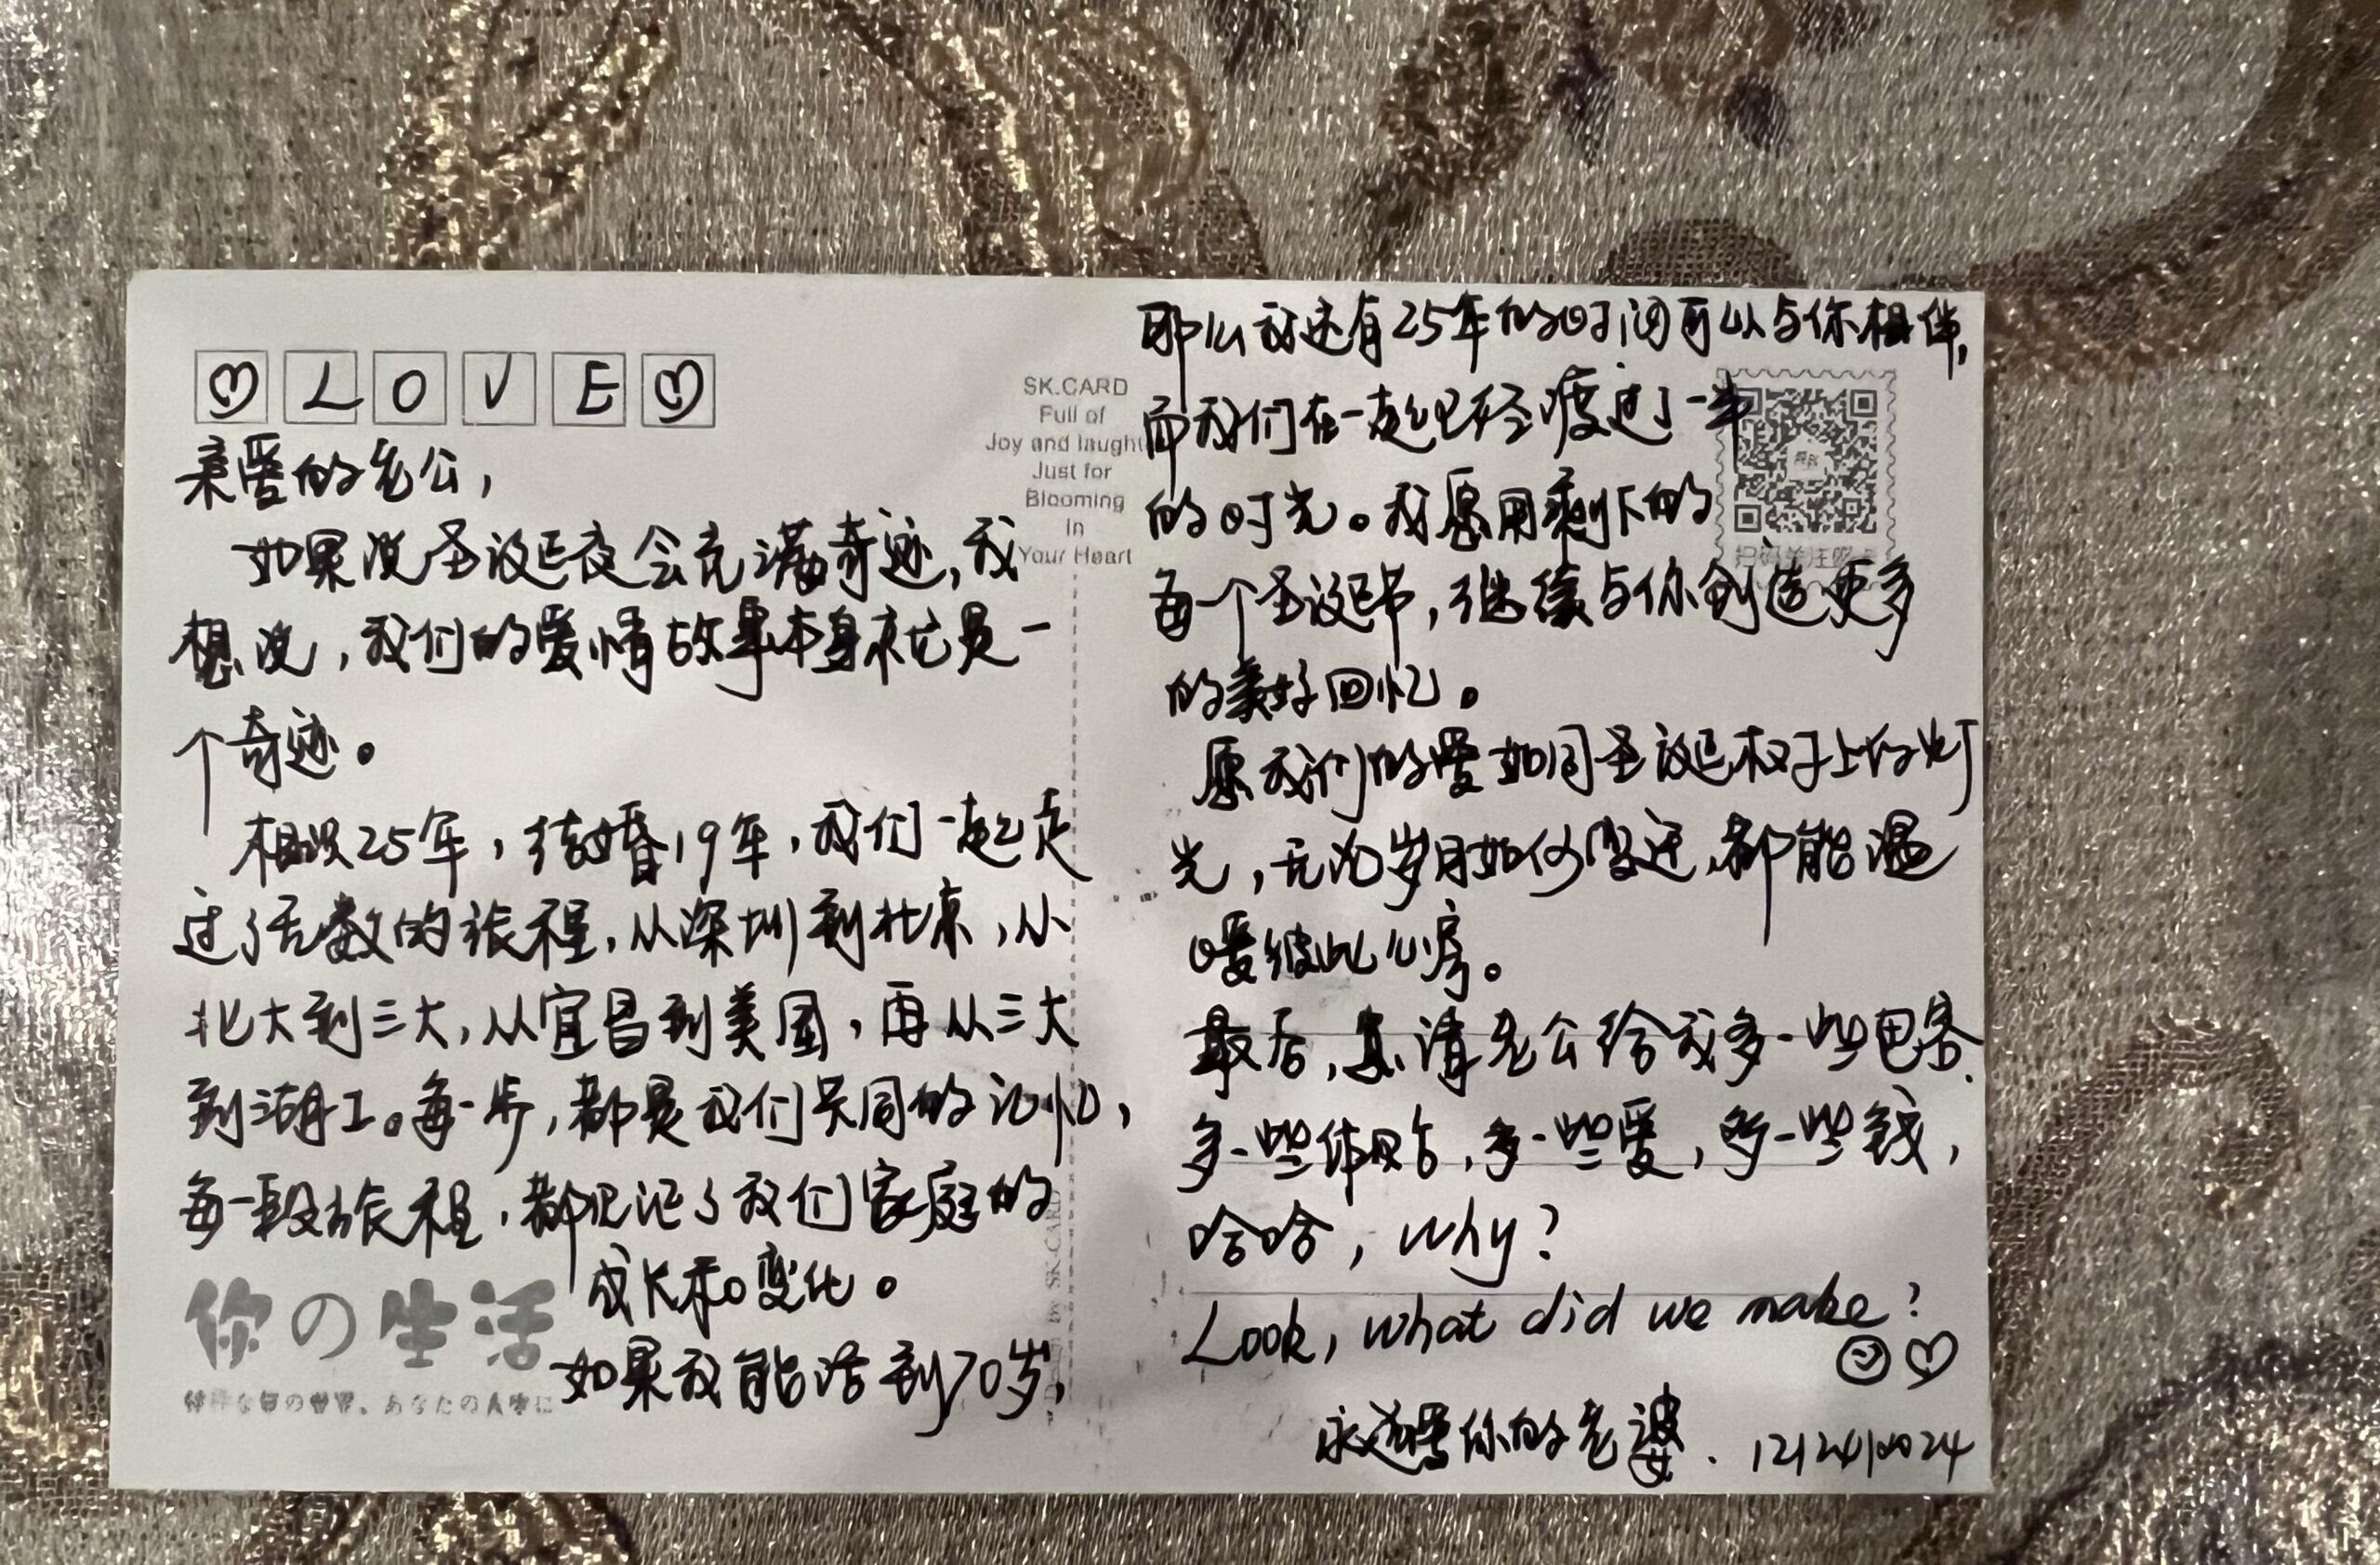 ♡ L O V E ♡
亲爱的老公，
如果说圣诞夜会充满奇迹，我
想说，我们的爱情故事本身就是一
个奇迹。
相识25年，结婚19年，我们一起走
过了无数的旅程，从深圳到北京，从
北大到三大，从宜昌到美国，再从三大
到湖工。每一步，都是我们共同的记忆，
每一段旅程，都见证了我们家庭的
成长和变化。
如果我能活到70岁，
你の生活
SK.CARD
Full of
Joy and laugh
Just for
Blooming
In
Your Heart
by SK-CARD
那么我还有25年的时间可以与你相伴，
而我们在一起已经度过了一半
的时光。我愿用剩下的
每一个圣诞节，继续与你创造更多
的美好回忆。
愿我们的爱如同圣诞树上的灯
光，无论岁月如何变迁，都能温
暖彼此心房。
最后，请老公给我多一些包容，
多一些体贴，多一些爱，多一些钱，
哈哈，why？
Look, what did we make?
永远爱你的老婆. 12/24/2024
扫码关注